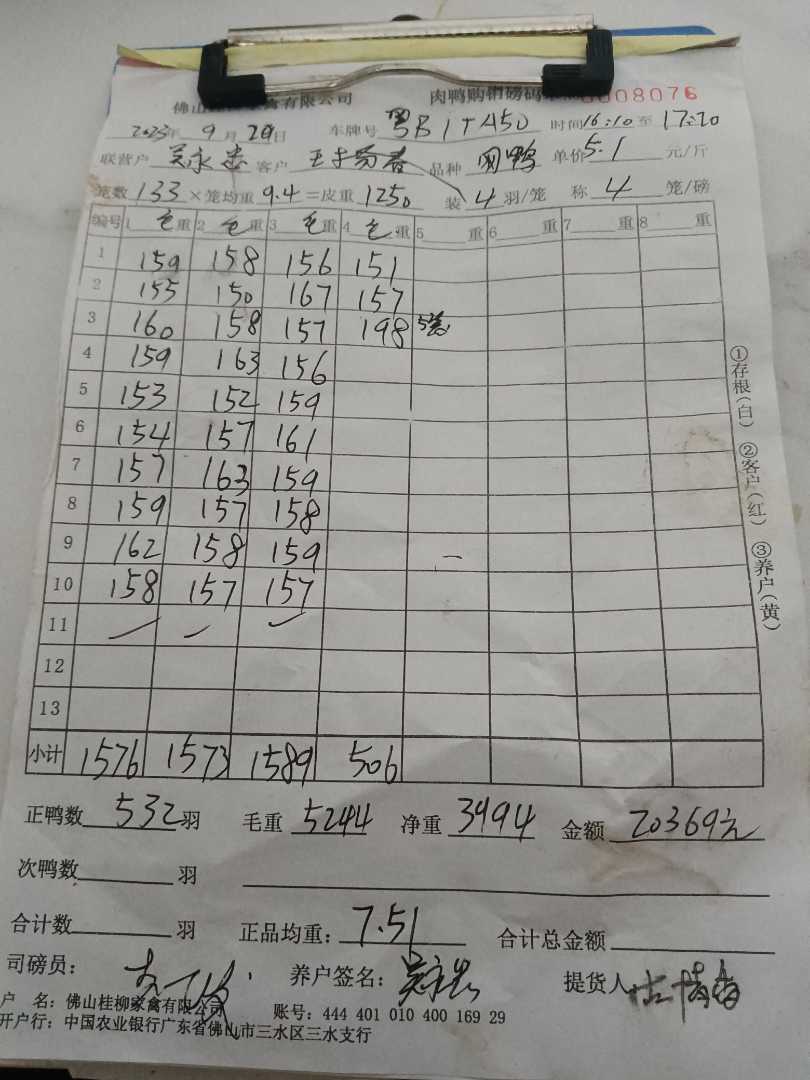 佛山桂柳家禽有限公司 肉鸭购销磅码单 0008076
2023年 9月 29日 车牌号 粤B1T450 时间16:10至17:20
联营户 吴永忠 客户 品种 单价5.1元/斤
笼数133×笼均重9.4=皮重1250 装4羽/笼 称4笼/磅
编号 1毛重 2毛重 3毛重 4毛重 5重 6重 7重 8重
1 159 158 156 151
2 155 150 167 157
3 160 158 157 198 5笼
4 159 163 156
5 153 152 159
6 154 157 161
7 157 163 159
8 159 157 158
9 162 158 159
10 158 157 157
11
12
13
小计 1576 1573 1589 506
正鸭数532羽 毛重5244 净重3994 金额20369元
次鸭数 羽
合计数 羽 正品均重:7.51 合计总金额
司磅员: 养户签名:吴永忠 提货人
户 名:佛山桂柳家禽有限公司 账号:444 401 010 400 169 29
开户行:中国农业银行广东省佛山市三水区三水支行
①存根(白) ②客户(红) ③养户(黄)